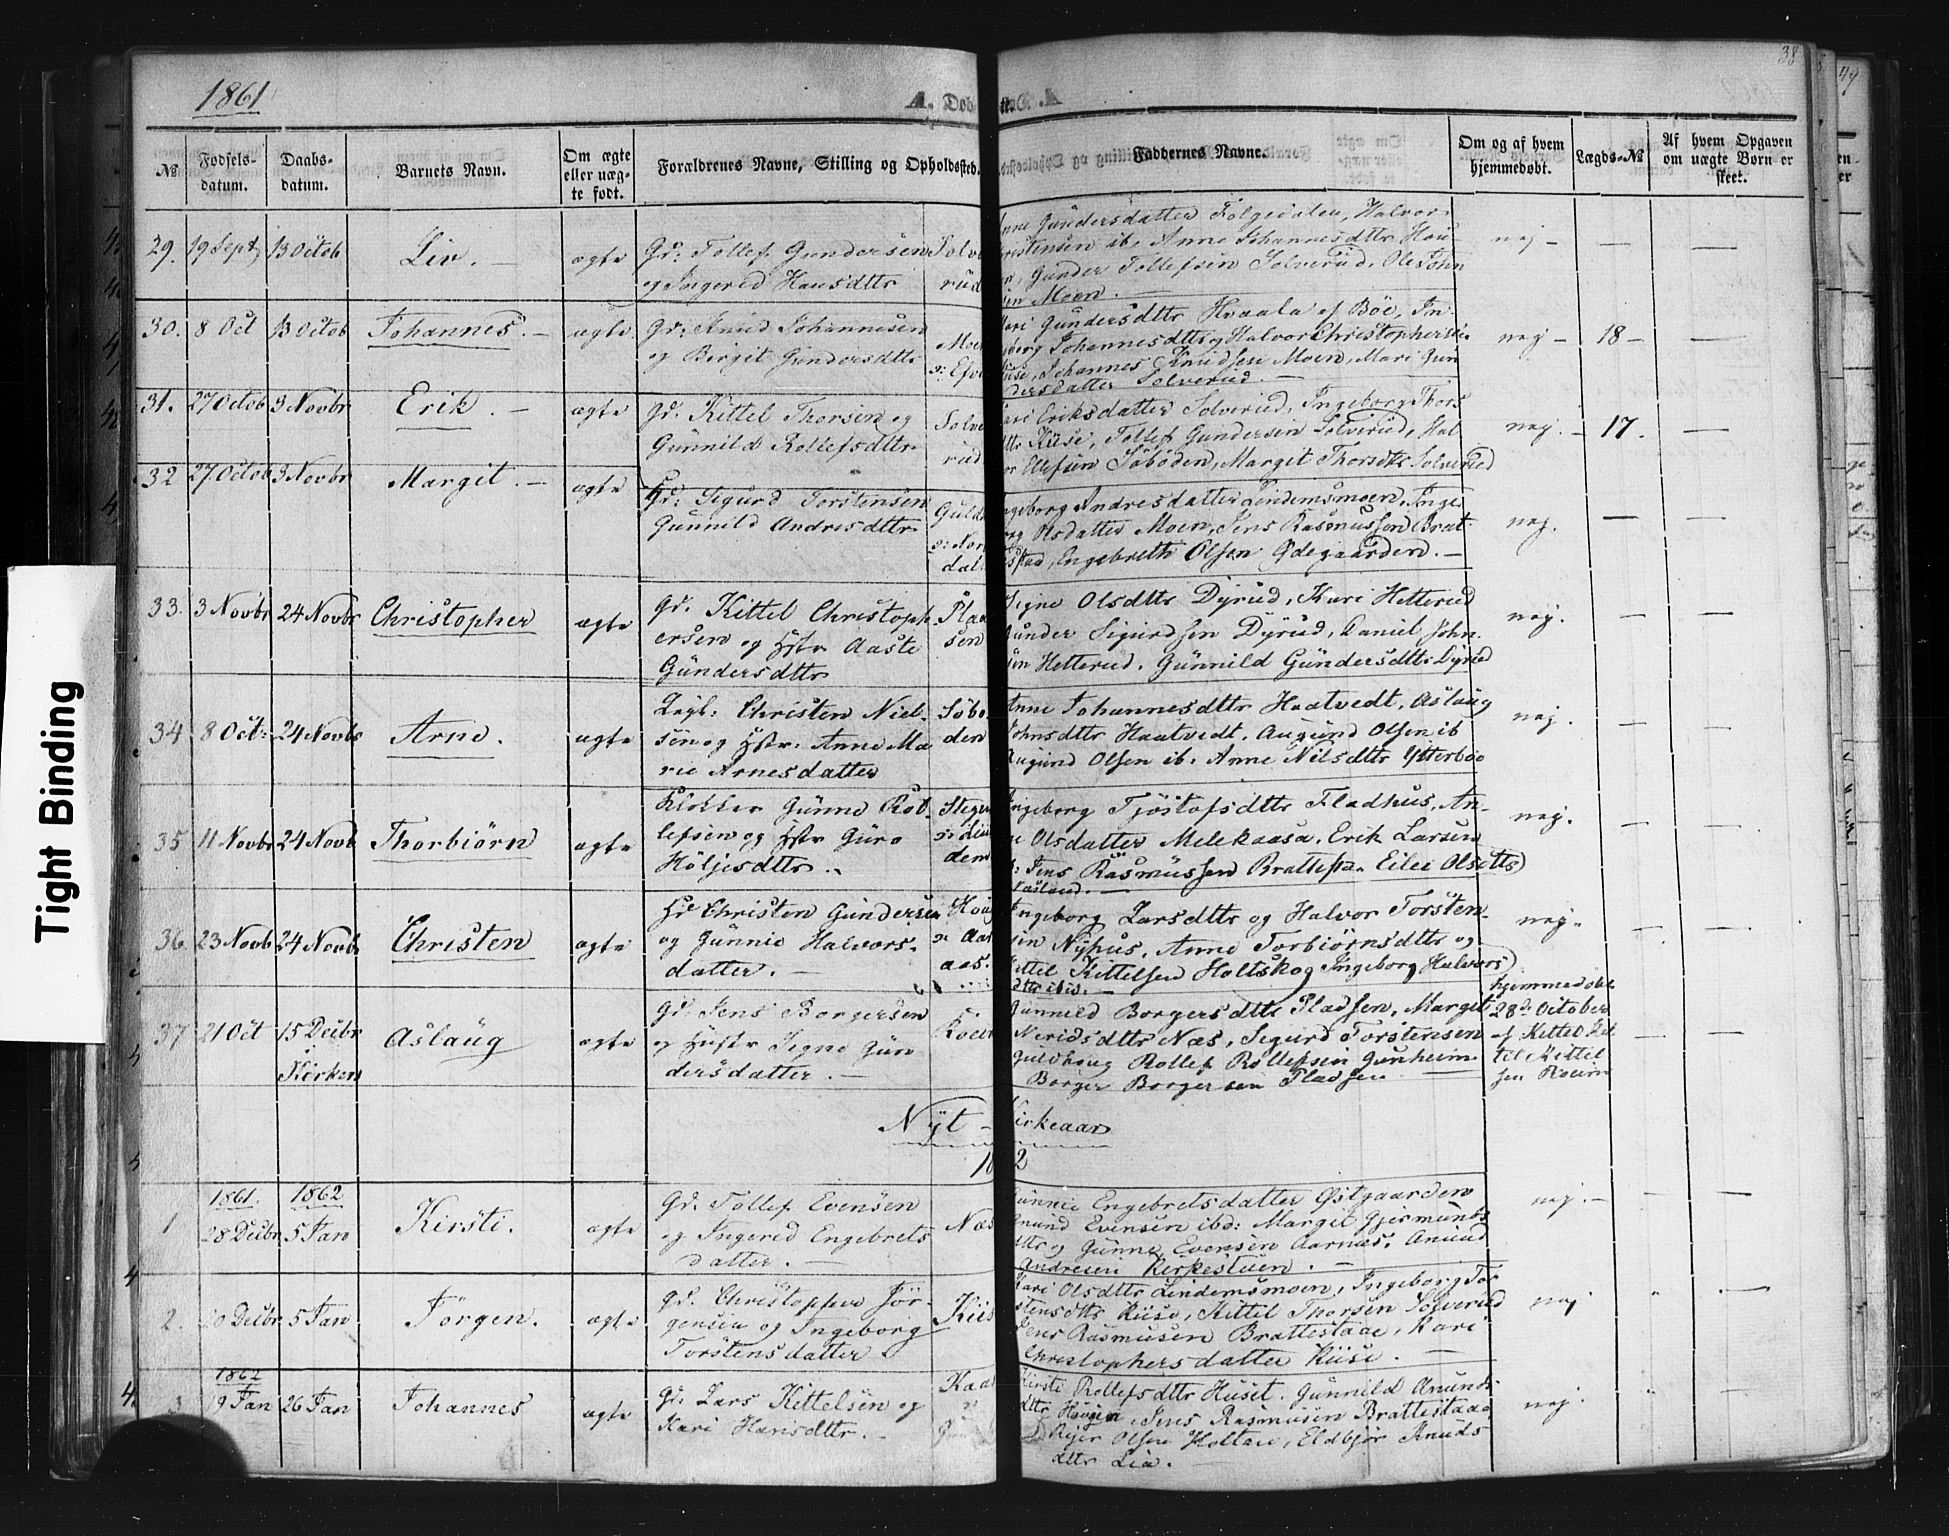 38
49
1861
A. Døb
№
Fødsels-
datum.
Daabs-
datum.
Barnets Navn.
Om ægte
eller uæg-
te født.
Forældrenes Navne, Stilling og Opholdssted.
Faddernes Navne.
Om og af hvem
hjemmedøbt.
Lægds-№
Af hvem Opgaven
om uægte Børn er
skeet.
29. 19 Sept 13 Octob Liv. ægte
Gd: Tollef Gundersen
og Ingerid Hansdttr
Solve
rud
Gundersdatter Følgedalen, Halvor
ib. Anne Johannesdttr Hou
Gunder Tollefsen Solverud, Ole John
sen Moen.
nej
30. 8 Oct 13 Octob Johannes. ægte
Gd: Knud Johannesen
og Birgit Gundersdttr
Moe
Gundersdttr Hvaala af Böe, In
Johannesdttr og Halvor Christophersen
Johannes Knudsen Moen, Mari Gun
dersdatter Solverud.
nej 18
31. 27 Octob 3 Novbr Erik. ægte
Gd: Kittel Thorsen og
Gunnild Rollefsdttr
Solve
rud
Eriksdatter Solverud, Ingeborg Thors
dttr Kiise, Tollef Gundersen Solverud, Hal
Ollefsen Söböden, Margit Thorsdttr Solverud
nej. 17.
32 27 Octob 3 Novbr Margit. ægte
Gd: Sigurd Torstensen
Gunnild Andresdttr
Guld
Andresdatter Lindemsmoen, Inge
Olsdatter Moen, Jens Rasmussen Brat
Engebreth Olsen Ødegaarden.
nej.
33. 3 Novbr 24 Novbr Christopher ægte
Gd. Kittel Christoph
ersen og Hstr Aaste
Gundersdttr
Plad
sen
Signe Olsdttr Dyrud, Kari Hetterud
Gunder Sigurdsen Dyrud, Daniel John
sen Hetterud. Gunnild Gundersdttr Dyrud
nej.
34 8 Oct: 24 Novb Arne. ægte
Christen Niel
sen og Hstr: Anne Ma
rie Arnesdatter
Söbö
den
Anne Johannesdttr Haatvedt, Aslaug
Johnsdttr Haatvedt, Augund Olsen ib
Augund Olsen ib. Anne Nilsdttr Ytterböe
nej.
35 11 Novbr 24 Novb Thorbiörn ægte
Klokker Gunne Rol
lefsen og Hstr Guro
Höljesdttr.
Steger
dem
Ingeborg Tjöstofsdttr Fladhus, An
Olsdatter Melekaasa, Erik Larsen
Jens Rasmussen Brattesta. Eilee Olsdttr
Aasland.
nej.
36. 23 Novb 24 Novb Christen ægte
Gd Christen Gundersen
og Gunnie Halvors
datter.
Houg
aas.
Ingeborg Larsdttr og Halvor Torsten
sen Nyhus, Anne Torbiörnsdttr og
Kittel Kittelsen Holtskog Ingeborg Halvors
dttr ibid.
nej
37 21 Oct 15 Decbr
Kirken
Aslaug ægte
Gd. Jens Borgersen
og Hustr Signe Gun
dersdatter.
Gunnild Borgersdttr Pladsen, Margit
Neridsdttr Næs, Sigurd Torstensen
Guldhaug Rollef Rollefsen Gunheim
Borger Borgersen Pladsen
hjemmedöbt
28de October
af Kittel Kit
til Kittel
sen Roien
Nyt Kirkeaar
1862
1861. 1862
1 28 Decbr 5 Jan Kirsti. ægte
Gd. Tollef Evensen
og Ingerid Engebrets
datter.
Næs
Gunnie Engebretsdatter Østgaarden
Evensen ibd: Margit Gjermunds
dttr og Gunne Evensen Aarnæs. Anund
Andresen Kirkestuen.
nej.
2. 20 Decbr 5 Jan Jörgen. ægte
Gd. Christopher Jör
gensen og Ingeborg
Torstensdatter
Kiis
Kari Olsdttr Lindemsmoen, Ingeborg Tor
stensdttr Kiise, Kittel Thorsen Solverud
Jens Rasmusen Brattestaae, Kari
Christophersdatter Kiise.
nej
1862
3 19 Jan 26 Jan Johannes ægte
Gd. Lars Kittelsen og
Kari Harisdttr.
Kaas
Kirsti Rollefsdttr Huset. Gunnild Anunds
dttr Haugen, Jens Rasmusen Brattestaae,
Olsen Holtan, Eldbjør Knuds
dttr Lia.
nej.
Tight Binding